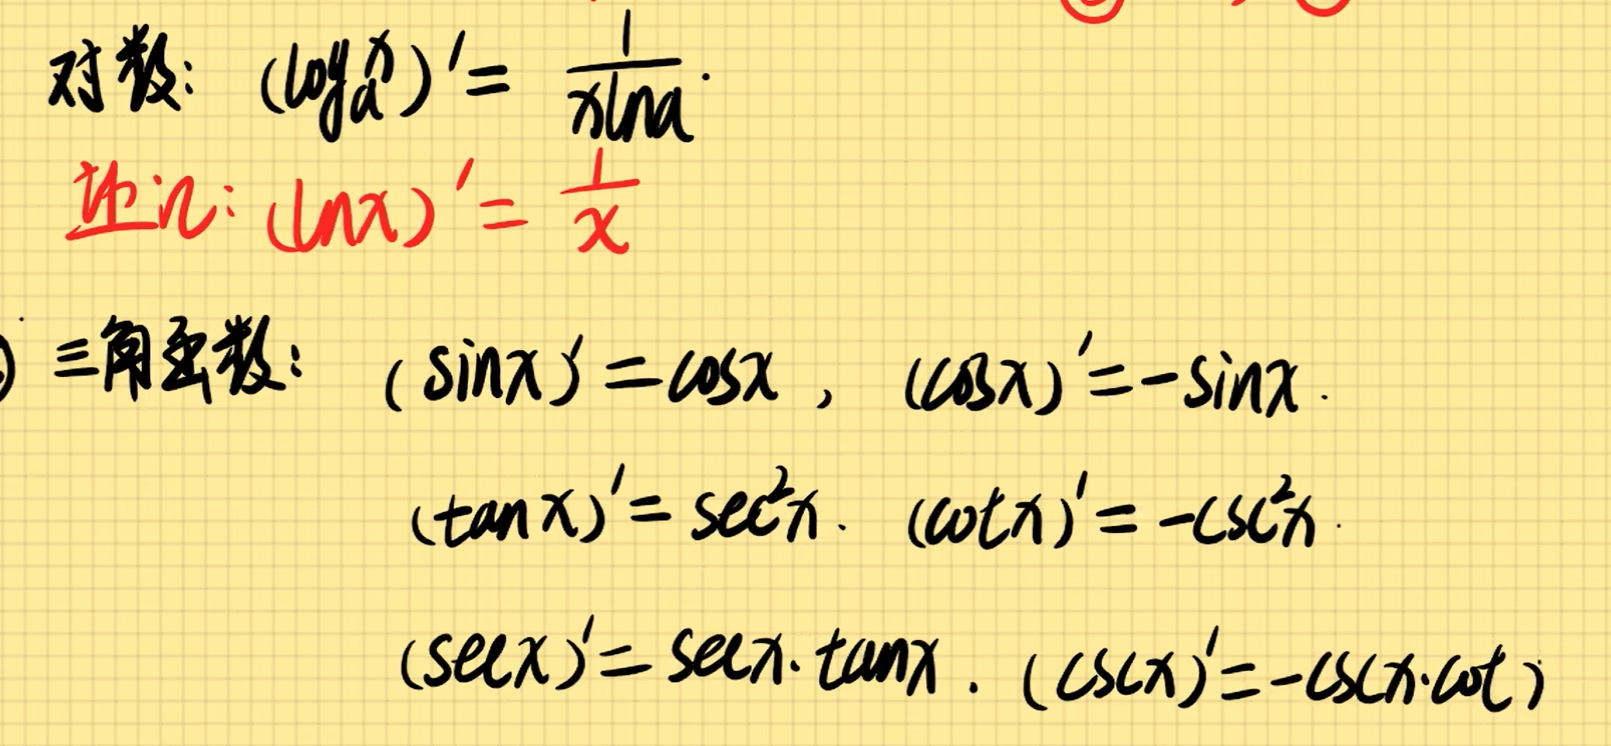 对数: (logₐx)′ = 1/(xlna).
(lnx)′ = 1/x
三角函数: (sinx)′ = cosx , (cosx)′ = -sinx.
(tanx)′ = sec²x. (cotx)′ = -csc²x.
(secx)′ = secx·tanx. (cscx)′ = -cscx·cot)